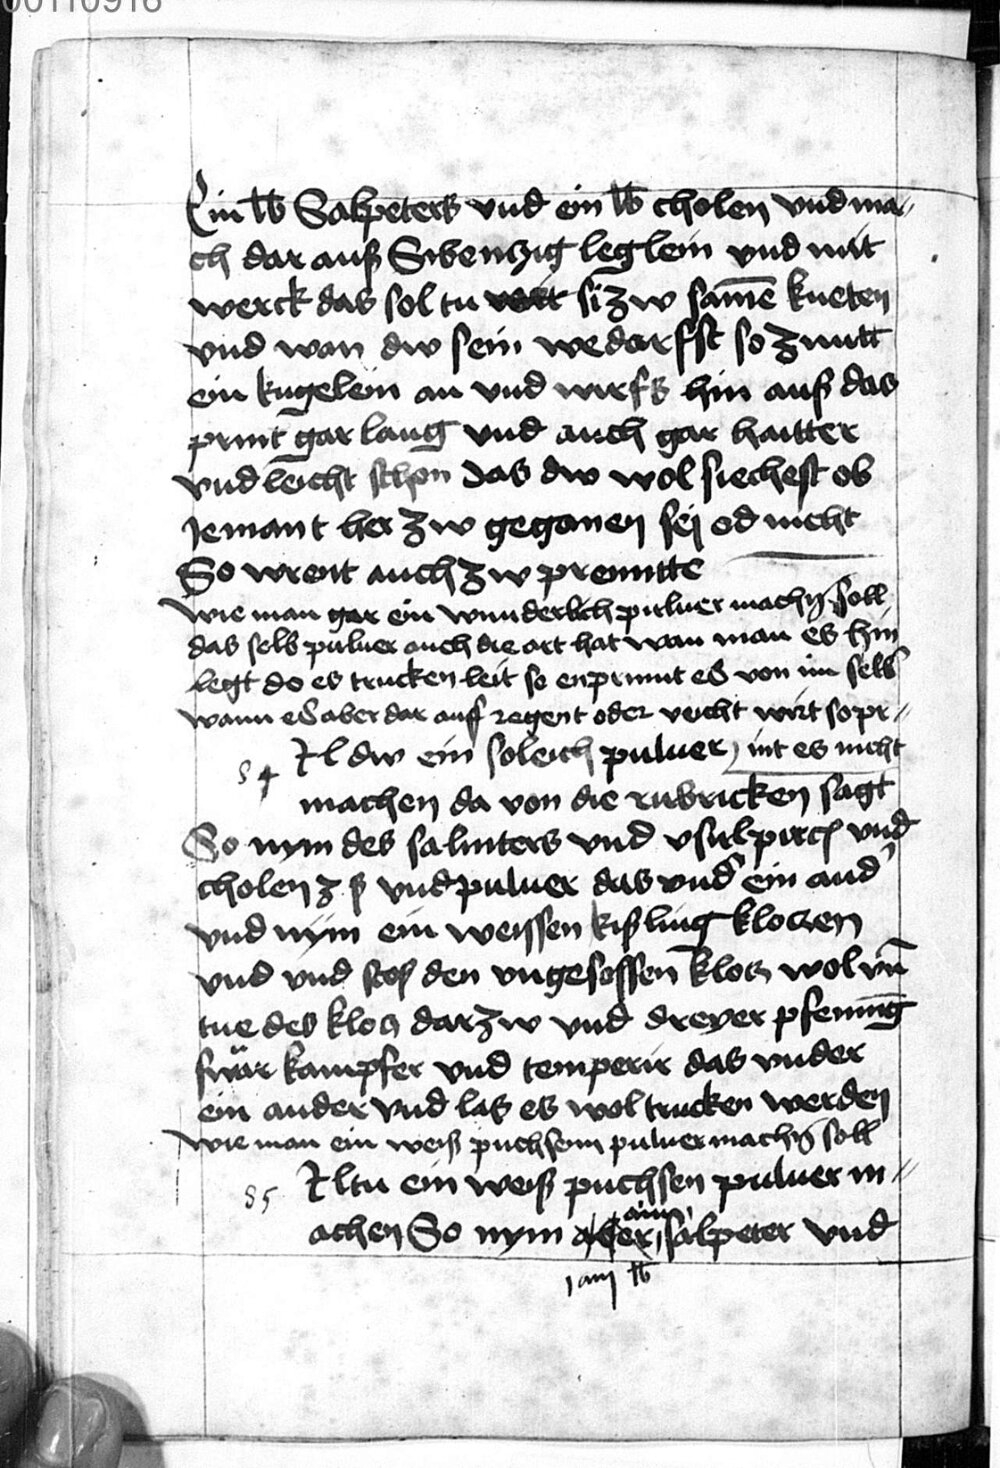 00110916
Ein lb Salpeters vnd ein lb cholen vnd ma-
ch dar auß Sibenczig leglein vnd mit
werck das sol tu si zw samē kneten
vnd wan dw sein wedarfst so zuntt
ein kugelein an vnd wirfs hin auß das
print gar lang vnd auch gar haitter
vnd leicht schon das dw wol siechest ob
jemant her zw geganen sej od nicht
So wreit auch zw prenntte
wie man gar ein wunderlich puluer machn̄ soll
das selb puluer auch die art hat wan man es hin
legt do es trucken leit so enprinnt es von im selbs
wann es aber dar auf regent oder veicht wirt so pr-
int es nicht
84 Il dw ein soleich puluer
machen da von die rubricken sagt
So nym des saliniters vnd vnd
cholen vnd puluer das vnd' ein and'
vnd nym ein weissen kißling kloczen
vnd vnd stoß den vngesossen klocz wol vn̄
tue des klocz darzw vnd dreyer pfening
swär kampfer vnd temperir das vnder
ein ander vnd las es wol trucken werden
wie man ein weiß puchsenn puluer machn̄ soll
85 Il tu ein weiß puchsen puluer m-
achen So nym ain salpeter vnd
lb